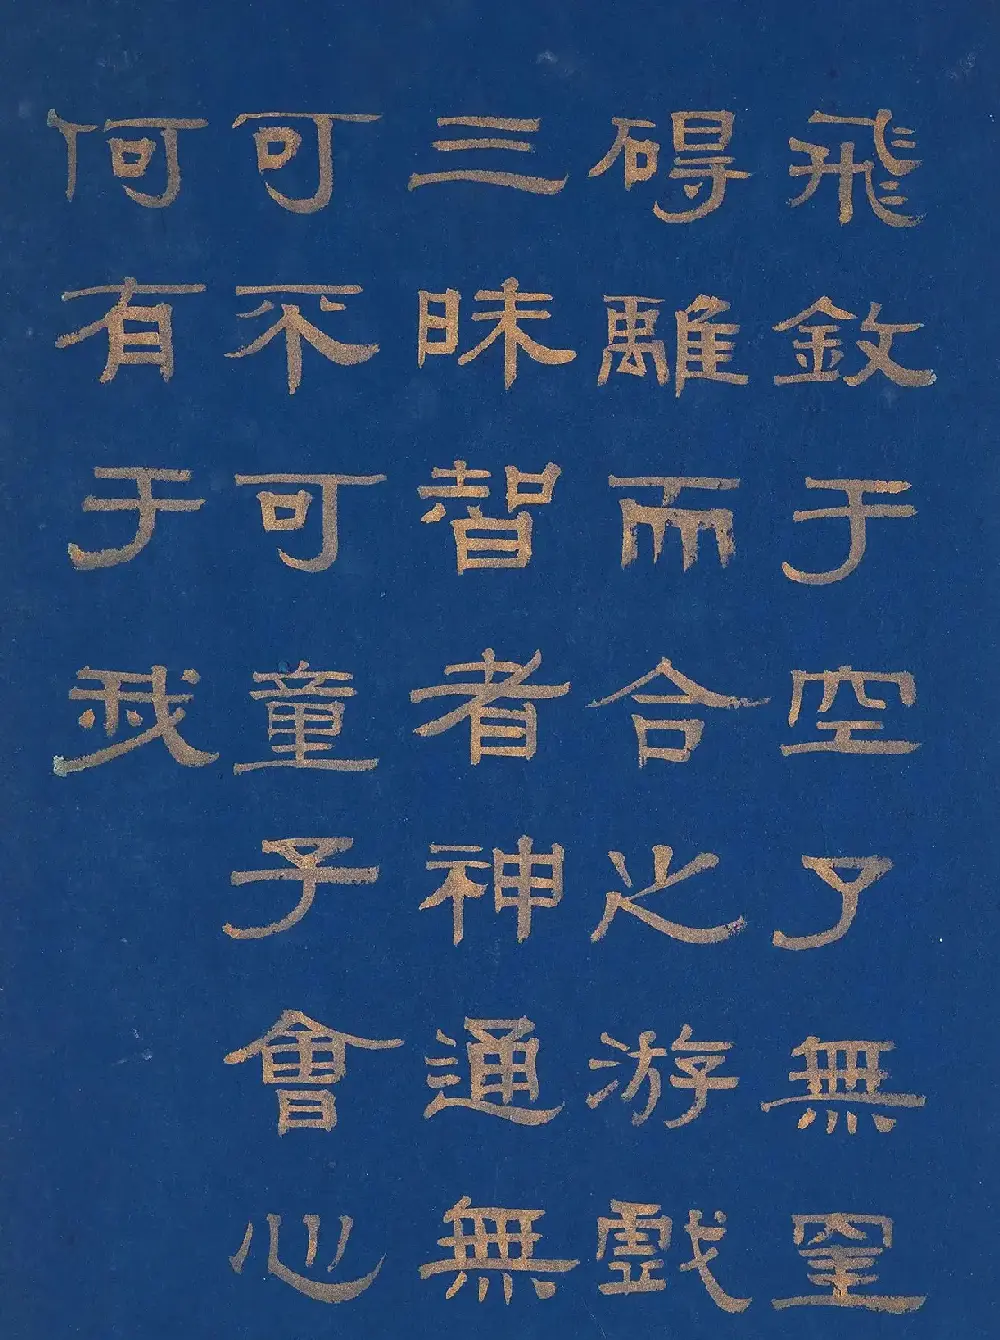 飛于空了無罣
礙離而合之游戲
三昧智者神通無
可不可童子會心
何有于我